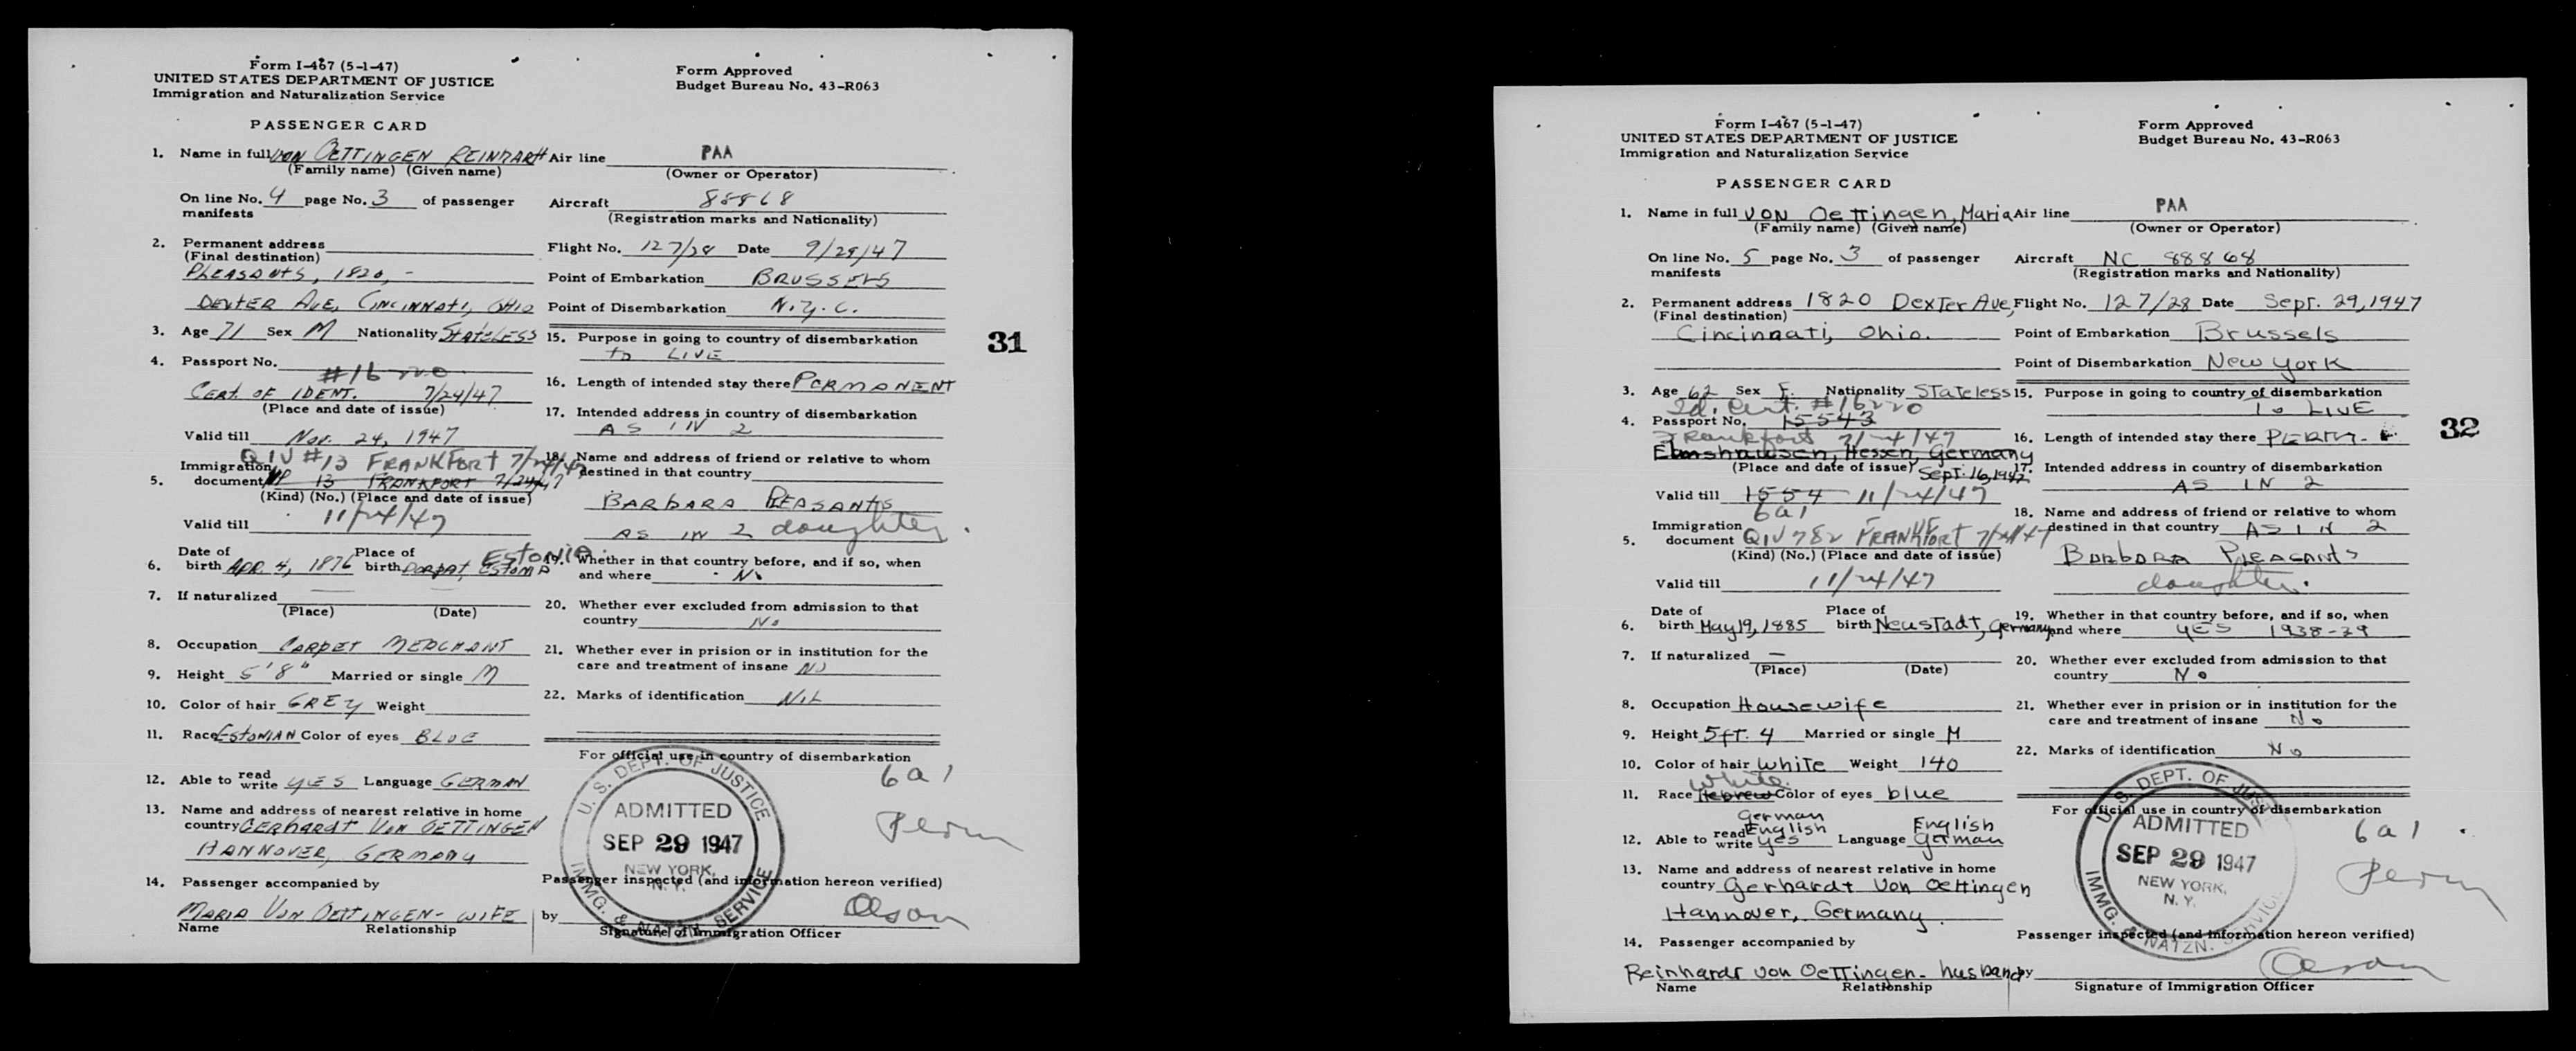 Form I-467 (5-1-47)
UNITED STATES DEPARTMENT OF JUSTICE
Immigration and Naturalization Service
Form Approved
Budget Bureau No. 43-R063
PASSENGER CARD
1. Name in full von OETTINGEN REINHARDT
(Family name) (Given name)
On line No. 4 page No. 3 of passenger
manifests
2. Permanent address
(Final destination)
PLEASANTS, 1820, -
DEXTER AVE, CINCINNATI, OHIO
3. Age 71 Sex M Nationality STATELESS
4. Passport No.
#16220
CERT. OF IDENT. 7/24/47
(Place and date of issue)
Valid till Nov. 24, 1947
QIV #13 FRANKFORT 7/24/47
Immigration
5. document 13 FRANKFORT 7/24/47
(Kind) (No.) (Place and date of issue)
11/24/47
Valid till
Estonia
Date of Place of
6. birth APR. 4, 1876 birth DORPAT, ESTONIA
7. If naturalized
(Place) (Date)
8. Occupation CARPET MERCHANT
9. Height 5'8" Married or single M
10. Color of hair GREY Weight
11. Race ESTONIAN Color of eyes BLUE
12. Able to read write YES Language GERMAN
13. Name and address of nearest relative in home
country GERHARDT VON OETTINGEN
HANNOVER, GERMANY
14. Passenger accompanied by
MARIA VON OETTINGEN - WIFE
Name Relationship
Air line PAA
(Owner or Operator)
Aircraft 88868
(Registration marks and Nationality)
Flight No. 127/28 Date 9/29/47
Point of Embarkation BRUSSELS
Point of Disembarkation N.Y.C.
15. Purpose in going to country of disembarkation
to LIVE
16. Length of intended stay there PERMANENT
17. Intended address in country of disembarkation
AS IN 2
18. Name and address of friend or relative to whom
destined in that country
BARBARA PLEASANTS
AS IN 2 daughter.
19. Whether in that country before, and if so, when
and where No
20. Whether ever excluded from admission to that
country No
21. Whether ever in prision or in institution for the
care and treatment of insane NO
22. Marks of identification NIL
For official use in country of disembarkation
6a1
Perm
U. S. DEPT. OF JUSTICE
ADMITTED
SEP 29 1947
NEW YORK,
N. Y.
IMMG. & NATZN. SERVICE
Passenger inspected (and information hereon verified)
by Olson
Signature of Immigration Officer
31
Form I-467 (5-1-47)
UNITED STATES DEPARTMENT OF JUSTICE
Immigration and Naturalization Service
Form Approved
Budget Bureau No. 43-R063
PASSENGER CARD
1. Name in full von Oettingen, Maria
(Family name) (Given name)
On line No. 5 page No. 3 of passenger
manifests
2. Permanent address 1820 Dexter Ave,
(Final destination)
Cincinnati, Ohio.
3. Age 62 Sex F. Nationality Stateless
Id. Cert. #16220
4. Passport No. 15543
Frankfort 7/24/47
Elmshausen, Hessen, Germany
(Place and date of issue) Sept. 16, 1947
Valid till 1554 11/24/47
6a1
Immigration
5. document QIV 782 FRANKFORT 7/24/47
(Kind) (No.) (Place and date of issue)
Valid till 11/24/47
Date of Place of
6. birth May 19, 1885 birth Neustadt, Germany
7. If naturalized —
(Place) (Date)
8. Occupation Housewife
9. Height 5ft. 4 Married or single M
10. Color of hair white Weight 140
White.
11. Race Hebrew Color of eyes blue
German
English English
12. Able to read write yes Language German
13. Name and address of nearest relative in home
country Gerhardt von Oettingen
Hannover, Germany.
14. Passenger accompanied by
Reinhardt von Oettingen - husband
Name Relationship
Air line PAA
(Owner or Operator)
Aircraft NC 88868
(Registration marks and Nationality)
Flight No. 127/28 Date Sept. 29, 1947
Point of Embarkation Brussels
Point of Disembarkation New York
15. Purpose in going to country of disembarkation
To LIVE
16. Length of intended stay there PERM.
17. Intended address in country of disembarkation
AS IN 2
18. Name and address of friend or relative to whom
destined in that country AS IN 2
BARBARA PLEASANTS
daughter.
19. Whether in that country before, and if so, when
and where YES 1938-39
20. Whether ever excluded from admission to that
country No
21. Whether ever in prision or in institution for the
care and treatment of insane No
22. Marks of identification No
For official use in country of disembarkation
6a1
Perm
U. S. DEPT. OF JUSTICE
ADMITTED
SEP 29 1947
NEW YORK,
N. Y.
IMMG. & NATZN. SERVICE
Passenger inspected (and information hereon verified)
by Olson
Signature of Immigration Officer
32